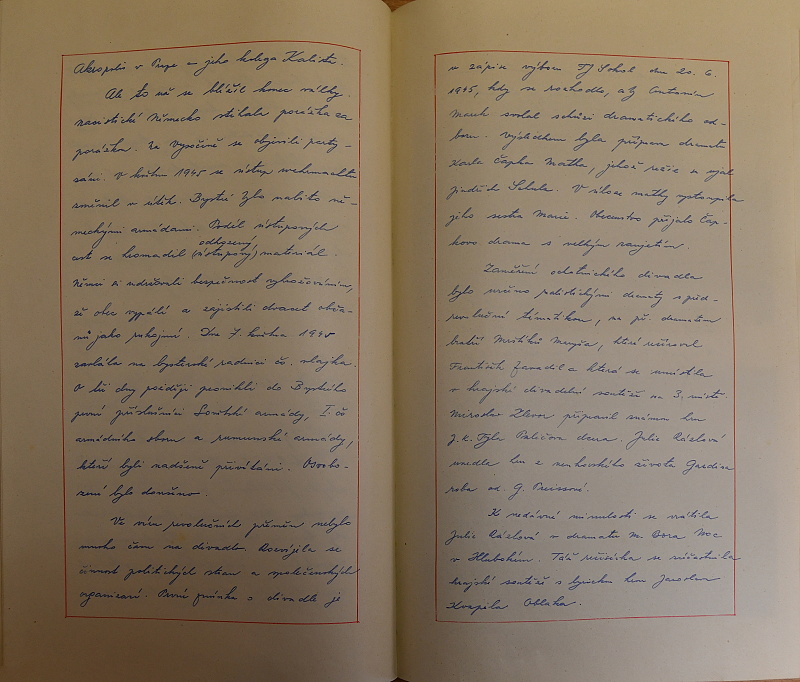 Akropolis v Praze a jeho kolega Kalista.
Ale to už se blížil konec války.
nacistické Německo stíhala porážka za
porážkou. Na Vysočině se objevili party-
záni. V květnu 1945 se ústup wehrmachtu
změnil v útěk. Bystré bylo nabito ně-
meckými armádami. Podél ústupových
odhozený
cest se hromadil (ústupový) materiál.
Němci si udržovali bezpečnost vyhrožováním,
že obec vypálí a zajistili dvacet obča-
nů jako rukojmí. Dne 7. května 1945
zavlála na bysterské radnici čs. vlajka.
O tři dny později pronikli do Bystrého
první příslušníci Sovětské armády, I. čs
armádního sboru a rumunské armády,
kteří byli nadšeně přivítáni. Osvobo-
zení bylo dovršeno.
Ve víru revolučních přeměn nebylo
mnoho času na divadlo. Rozvíjela se
činnost politických stran a společenských
organizací. První zmínka o divadle je
v zápise výboru TJ Sokol dne 20. 6.
1945, kdy se rozhodlo, aby Antonín
svolal schůzi dramatického od-
boru. Výsledkem byla příprava dramatu
Karla Čapka Matka, jehož režie se ujal
Jindřich Sekala. V úloze matky vystoupila
jeho sestra Marie. Obecenstvo přijalo Čap-
kovo drama s velkým zaujetím.
Zaměření ochotnického divadla
bylo určeno realistickými dramaty s před-
revoluční tématikou, na př. dramatem
bratří Mrštíků Maryša, které režíroval
František Zavadil a která se umístila
v krajské divadelní soutěži na 3. místě.
Miroslav připravil známou hru
J. K. Tyla Paličova dcera. Julie Rázlová
uvedla hru z venkovského života Gazdina
roba od G. Preissové.
K nedávné minulosti se vrátila
Julie Rázlová v dramatu M. Noc
v Hlubokém. Táž režisérka se zúčastnila
krajské soutěže s lyrickou hrou Jaroslava
Kvapila Oblaka.